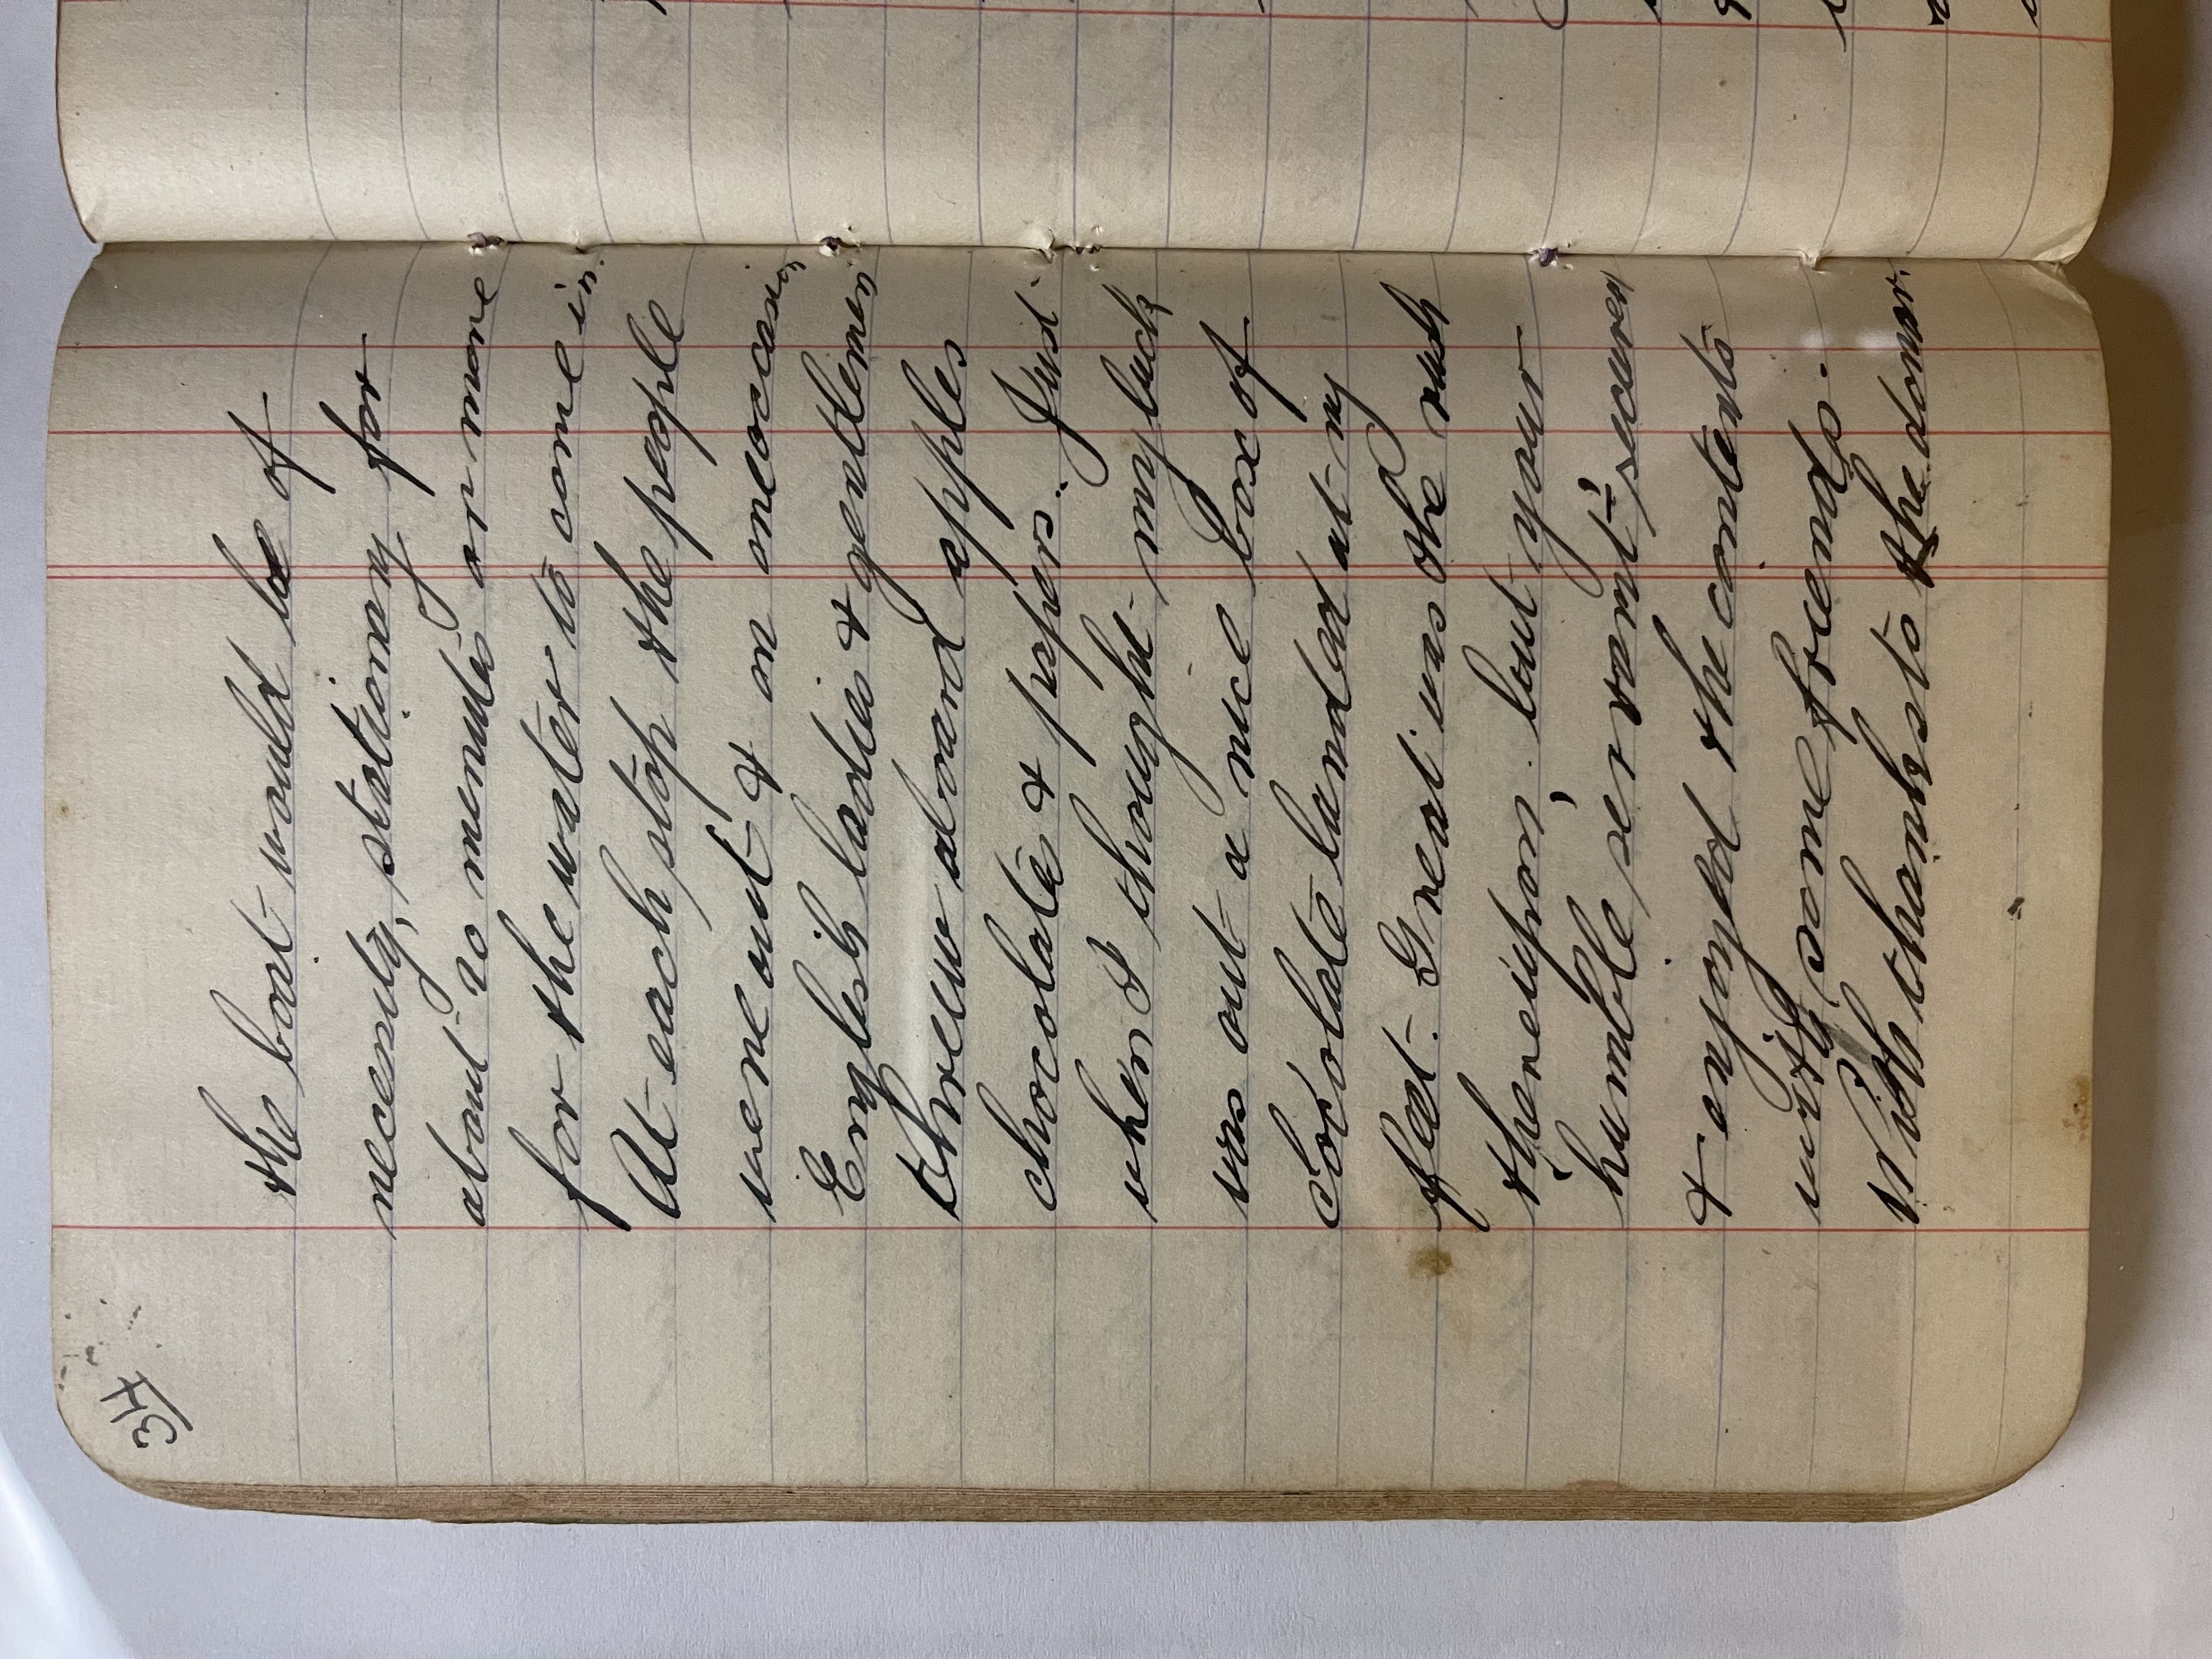 34
the boat would be of
necessity, stationary for
about 20 menutes or more
for the water to come in.
At each stop the people
were out & on one occasion
English ladies & gentlemen
threw aboard apples
chocolates & papers. Just
when I thought my luck
was out a nice box of
chocolate landed at my
feet. Great was the rush
thereupon, but your
humble servant secured
& enjoyed the contents
with some friends.
With thanks to the donor.